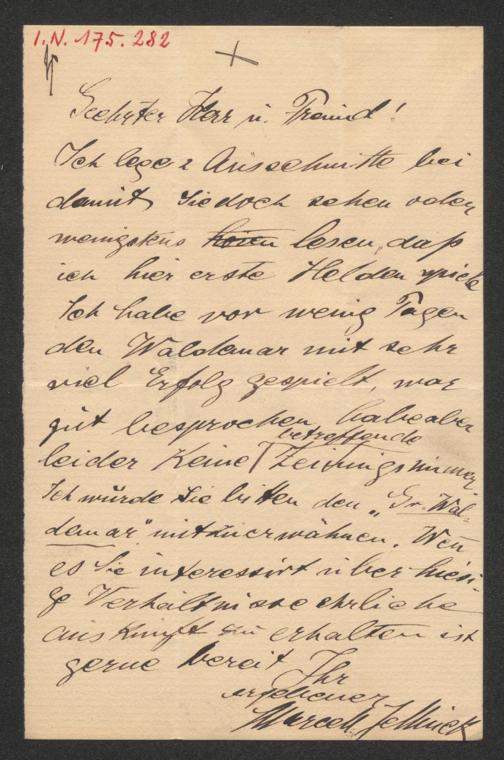 I.N. 175.282
Geehrter Herr u. Freund!
Ich lege 2 Ausschnitte bei
damit Sie doch sehen oder
wenigstens lesen, daß
ich hier erste Helden spiele
Ich habe vor wenig Tagen
den Waldemar mit sehr
viel Erfolg gespielt, war
gut besprochen, habe aber
leider keine betreffende Zeitungsnummer
Ich würde Sie bitten den „Gr. Wal-
demar" mitzuerwähnen. Wen
es Sie interessirt über hiesi-
ge Verhältnisse ehrliche
auskunft zu erhalten ist
gerne bereit Ihr
ergebener
Marcell Jellinek